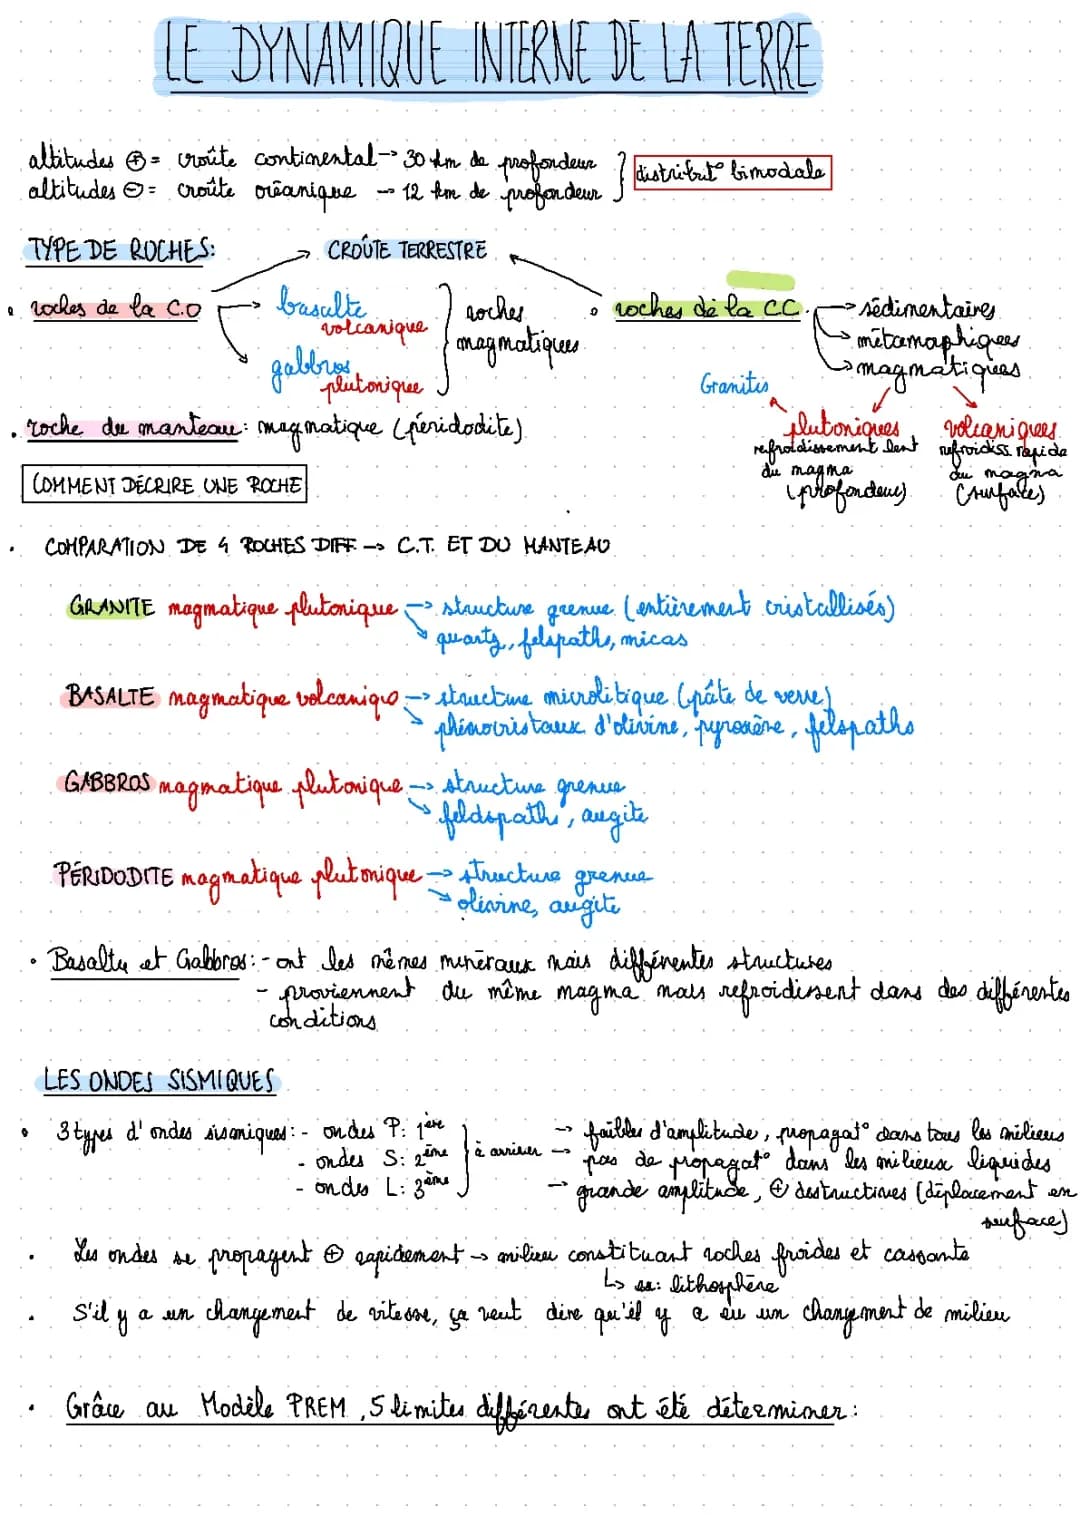 LE DYNAMIQUE INTERNE DE LA TERRE
altitudes ⊕ = croûte continental → 30 km de profondeur
altitudes ⊖ = croûte océanique → 12 km de profondeur
distribut° bimodale
TYPE DE ROCHES:
CROÛTE TERRESTRE
• roches de la C.O
basalte
volcanique
gabbros
plutonique
roches
magmatiques
• roches de la CC
sédimentaires
métamaphiques
magmatiques
Granites
plutoniques
refroidissement lent
du magma
(profondeur)
volcaniques
refroidiss rapide
du magma
(surface)
• roche du manteau: magmatique (péridodite)
COMMENT DÉCRIRE UNE ROCHE
• COMPARATION DE 4 ROCHES DIFF. → C.T. ET DU MANTEAU
GRANITE magmatique plutonique → structure grenue (entièrement cristallisés)
quartz, felspaths, micas
BASALTE magmatique volcaniqe → structure microlitique (pâte de verre)
phénocristaux d'olivine, pyroxène, felspaths
GABBROS magmatique plutonique → structure grenue
feldspaths, augite
PÉRIDODITE magmatique plutonique → structure grenue
olivine, augite
• Basalte et Gabbros: - ont les mêmes minéraux mais différentes structures
- proviennent du même magma mais refroidissent dans des différentes
conditions
LES ONDES SISMIQUES
• 3 types d'ondes sismiques: - ondes P: 1ère
- ondes S: 2ème
- ondes L: 3ème
à arriver
→ faibles d'amplitude, propagat° dans tous les milieux
→ pas de propagat° dans les milieux liquides
→ grande amplitude, ⊕ destructives (déplacement en
surface)
• Les ondes se propagent ⊕ rapidement → milieu constituant roches froides et cassante
↳ ex: lithosphère
• S'il y a un changement de vitesse, ça veut dire qu'il y a eu un changement de milieu
• Grâce au Modèle PREM, 5 limites différentes ont été déterminer: